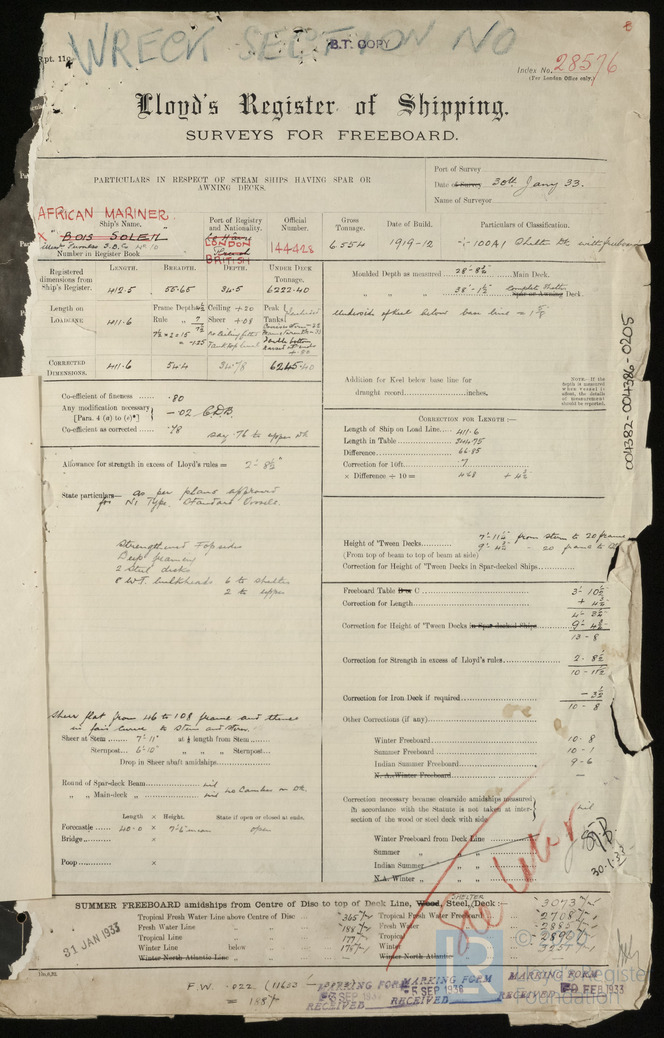 WRECK SECTION NO
B.T. COPY
Rpt. 11c
Index No. 28576
(For London Office only.)
Lloyd's Register of Shipping.
SURVEYS FOR FREEBOARD.
PARTICULARS IN RESPECT OF STEAM SHIPS HAVING SPAR OR
AWNING DECKS.
Port of Survey
Date of Survey 30th Jany 33.
Name of Surveyor
AFRICAN MARINER
Ship's Name,
X "BOIS SOLEIL"
Number in Register Book
Port of Registry
and Nationality.
LONDON
BRITISH
Official
Number.
144428
Gross
Tonnage.
6554
Date of Build.
1919-12
Particulars of Classification.
100A1 Shelter Dk with freeboard
Registered
dimensions from
Ship's Register.
LENGTH.
412.5
BREADTH.
55.65
DEPTH.
34.5
UNDER DECK
TONNAGE.
6222.40
Moulded Depth as measured 28-8½ Main Deck.
" " " 38-1½ complete shelter Spar or Awning Deck.
Length on
LOADLINE
411.6
Frame Depths
Rule
Ceiling +20
Sheer +08
Peak
Tanks
Underside of keel below base line = 1⅝
CORRECTED
DIMENSIONS.
411.6
54.4
34.78
6245.40
Addition for Keel below base line for
draught record inches.
NOTE.—If the
depth is
measured
when vessel is
afloat, the details
of measurement
should be reported.
004382-004386-0205
Co-efficient of fineness .80
Any modification necessary
[Para. 4 (a) to (e)*]
-02 C.D.B.
Co-efficient as corrected .78
say .76 to upper dk
CORRECTION FOR LENGTH :—
Length of Ship on Load Line 411.6
Length in Table 344.75
Difference 66.85
Correction for 10ft. .7
× Difference ÷ 10 = 4.68 + 4½
Allowance for strength in excess of Lloyd's rules = 2-8½"
State particulars— as per plans approved
for N1 Type, Standard Vessels.
Strengthened Topsides
Deep framing
2 steel decks
8 W.T. bulkheads 6 to shelter
2 to upper
Height of 'Tween Decks 7-11½ from stem to 20 frame
(From top of beam to top of beam at side) 9-4½ - 20 frame to
Correction for Height of 'Tween Decks in Spar-decked Ships
Freeboard Table B or C 3-10½
Correction for Length + 4½
Correction for Height of 'Tween Decks in Spar-decked Ships 9-4½
13-8
Correction for Strength in excess of Lloyd's rules 2-8½
10-11½
Correction for Iron Deck if required -3½
10-8
Other Corrections (if any)
Winter Freeboard 10-8
Summer Freeboard 10-1
Indian Summer Freeboard 9-6
N. A. Winter Freeboard —
Sheer flat from 46 to 108 frame and thence
in fair curve to stem and stern.
Sheer at Stem 7-11" at ⅛ length from Stem
Sternpost 6-10" " " " Sternpost
Drop in Sheer abaft amidships
Round of Spar-deck Beam nil
" " Main-deck " nil no Camber on Dk.
Length × Height. State if open or closed at ends.
Forecastle 40-0 × 7-6 mean open
Bridge ×
Poop ×
Correction necessary because clearside amidships measured
in accordance with the Statute is not taken at inter-
section of the wood or steel deck with side
nil
Winter Freeboard from Deck Line
Summer " " "
Indian Summer " " "
N.A. Winter " " "
See later
30.1.33
SUMMER FREEBOARD amidships from Centre of Disc to top of Deck Line, Wood, Steel, SHELTER Deck :— 3073
Tropical Fresh Water Line above Centre of Disc 365
Fresh Water Line " " 188
Tropical Line " " 177
Winter Line below " 178
Winter North Atlantic Line " "
Tropical Fresh Water Freeboard 2708
Fresh Water 2885
Tropical 2896
Winter 3251
Winter North Atlantic
31 JAN 1933
F.W. .022
= 188
MARKING FORM
SEP
RECEIVED
MARKING FORM
5 SEP 1938
RECEIVED
MARKING FORM
9 FEB 1933
RECEIVED
LR
© Lloyd's Register
Foundation